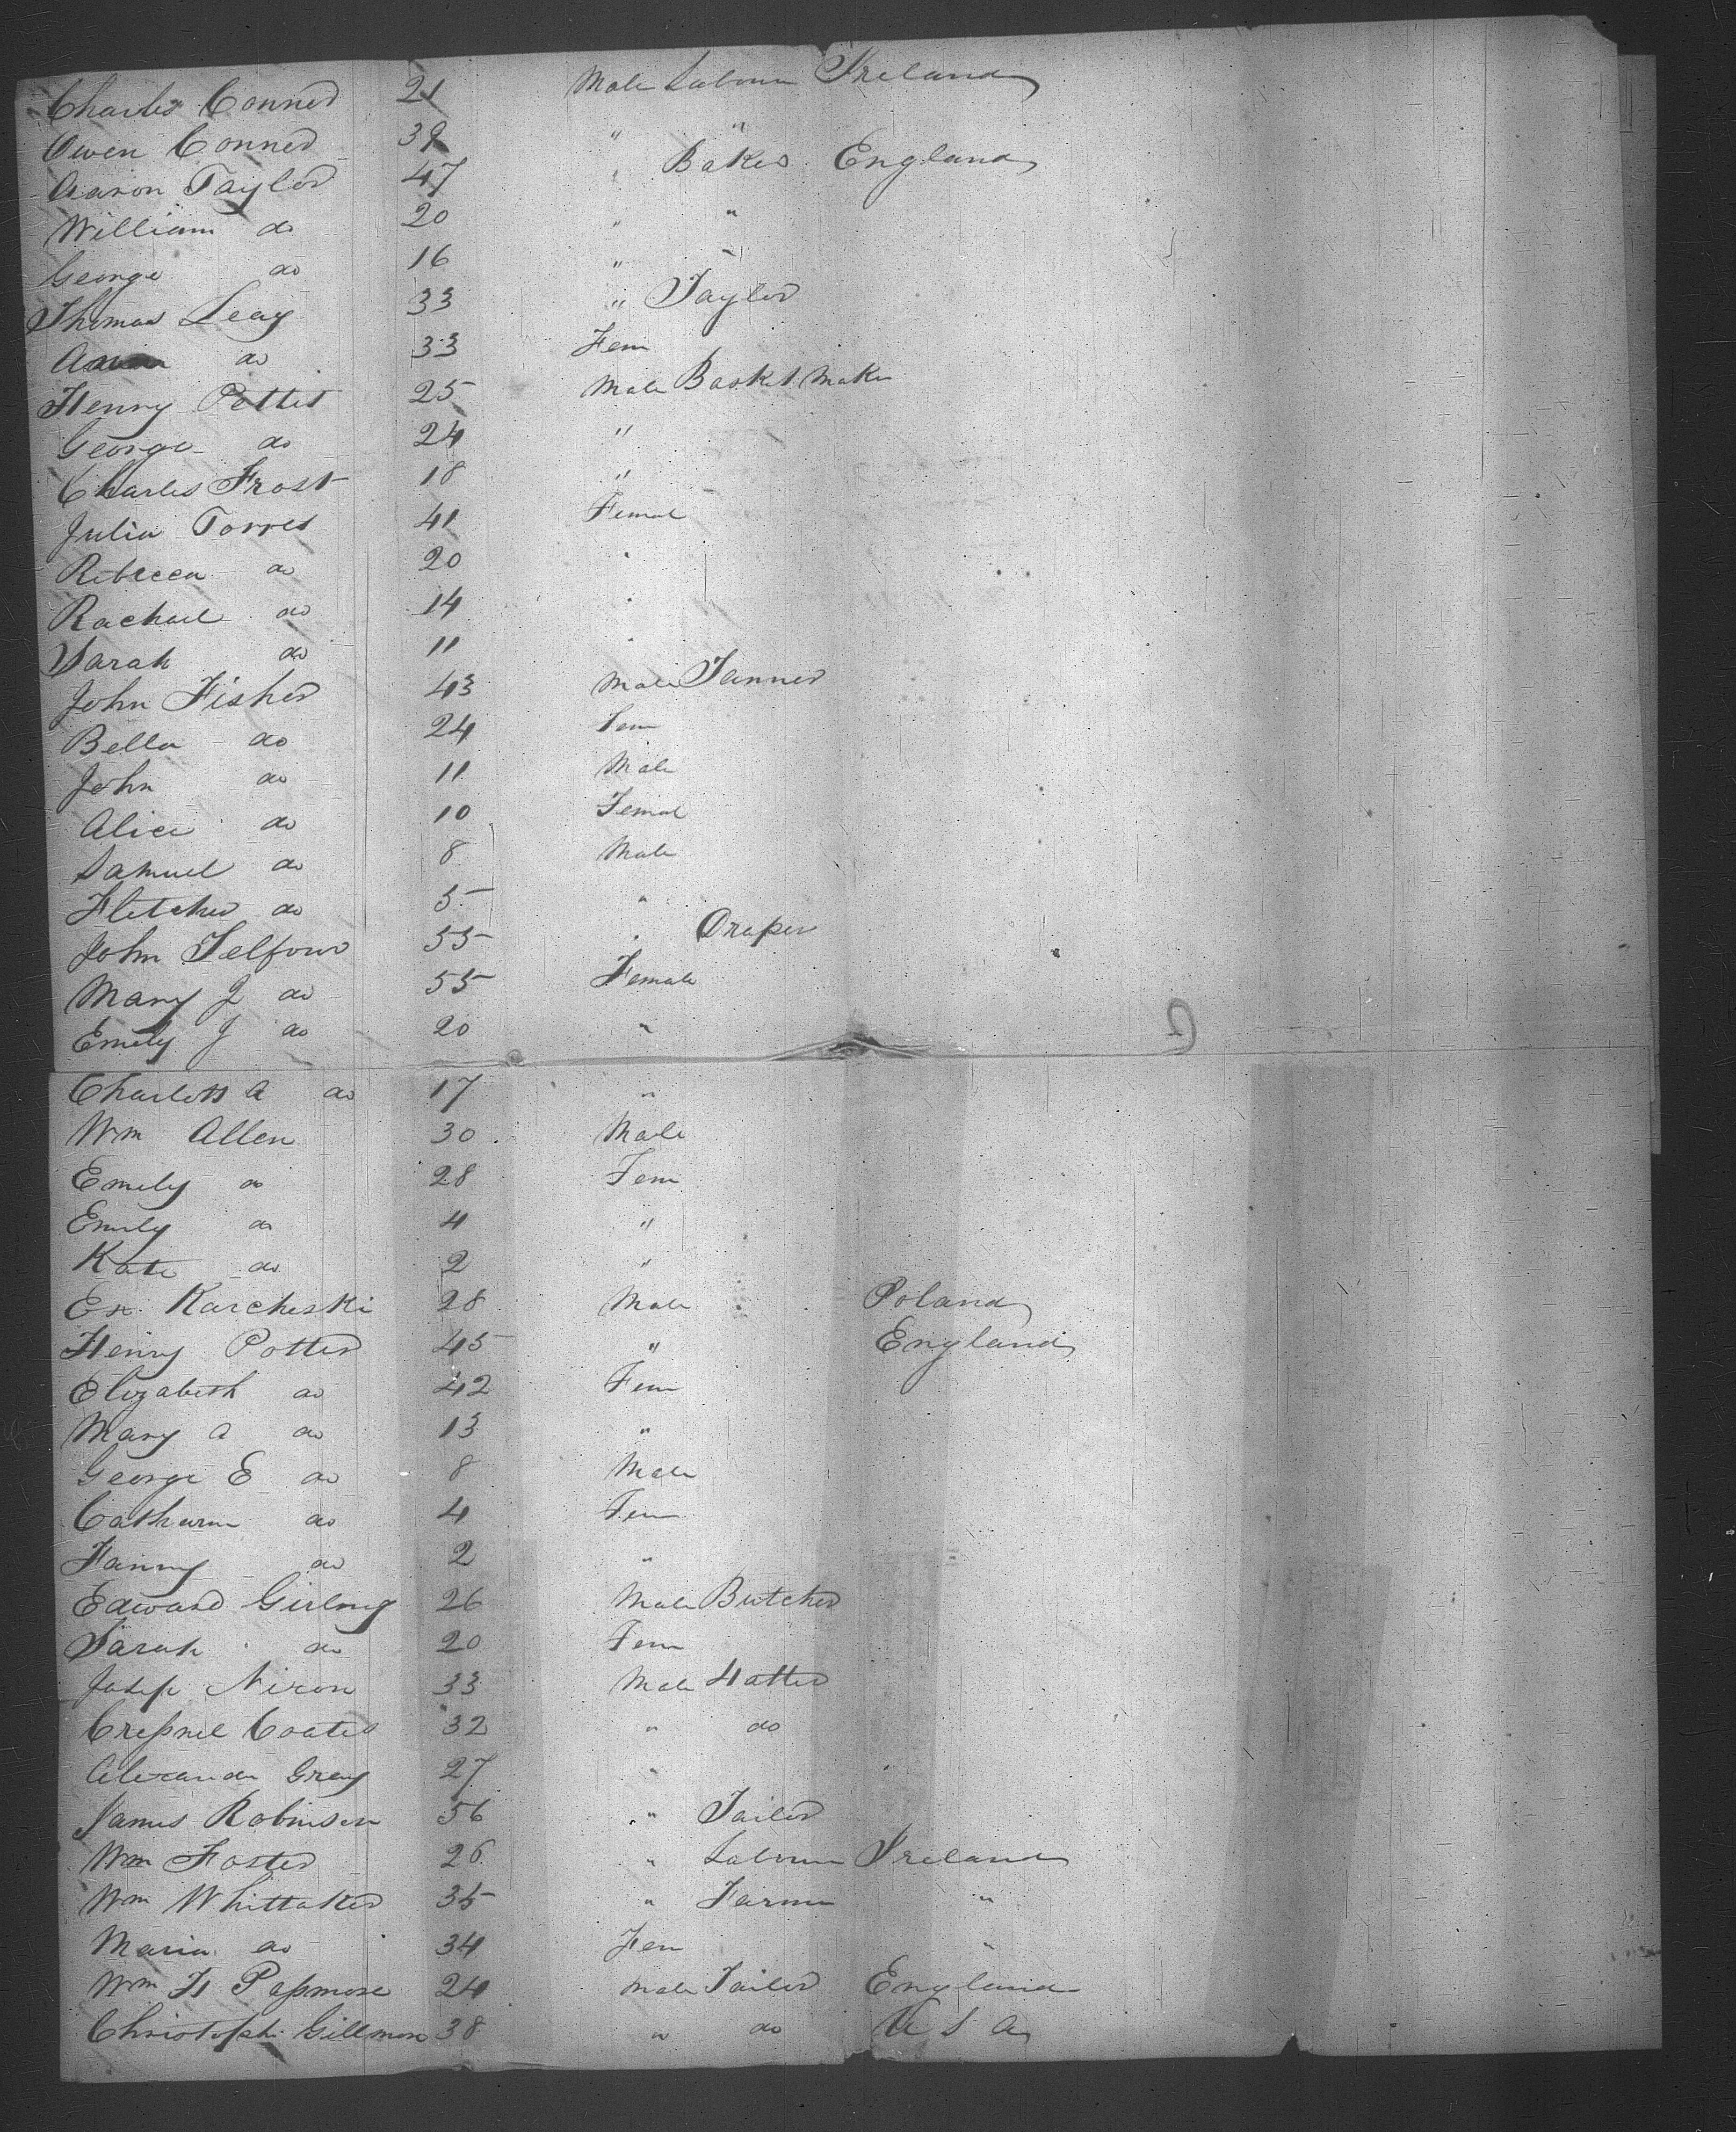 Charles Conner 21 Male Labour Ireland
Owen Conner 39 " "
Aaron Taylor 47 " Baker England
William do 20 " "
George do 16 " "
Thomas Leay 33 " Taylor
do 33 Fem
Henry Potter 25 Male Basket Maker
George do 24 "
Charles Frost 18 "
Julia Torres 41 Femal
Rebecca do 20 "
Rachael do 14 "
Sarah do 11 "
John Fisher 43 Male Tanner
Bella do 24 Fem
John do 11 Male
Alice do 10 Femal
Samuel do 8 Male
Fletcher do 5 "
John Telfour 55 " Draper
Mary J do 55 Female
Emily J do 20 "
Charlott A do 17 "
Wm Allen 30 Male
Emily do 28 Fem
Emily do 4 "
Kate do 2 "
Ex. Karcheski 28 Male Poland
Henry Potter 45 " England
Elizabeth do 42 Fem
Mary A do 13 "
George E do 8 Male
Catherine do 4 Fem
Fanny do 2 "
Edward Girling 26 Male Butcher
Sarah do 20 Fem
Josep Nixon 33 Male Hatter
Cressnel Coates 32 " do
Alexander Grey 27 "
James Robinson 56 " Tailor
Wm Foster 26 " Labour Ireland
Wm Whittaker 35 " Farmer "
Maria do 34 Fem "
Wm H Passmore 24 Male Tailor England
Christoph. Gillmore 38 " do U S A